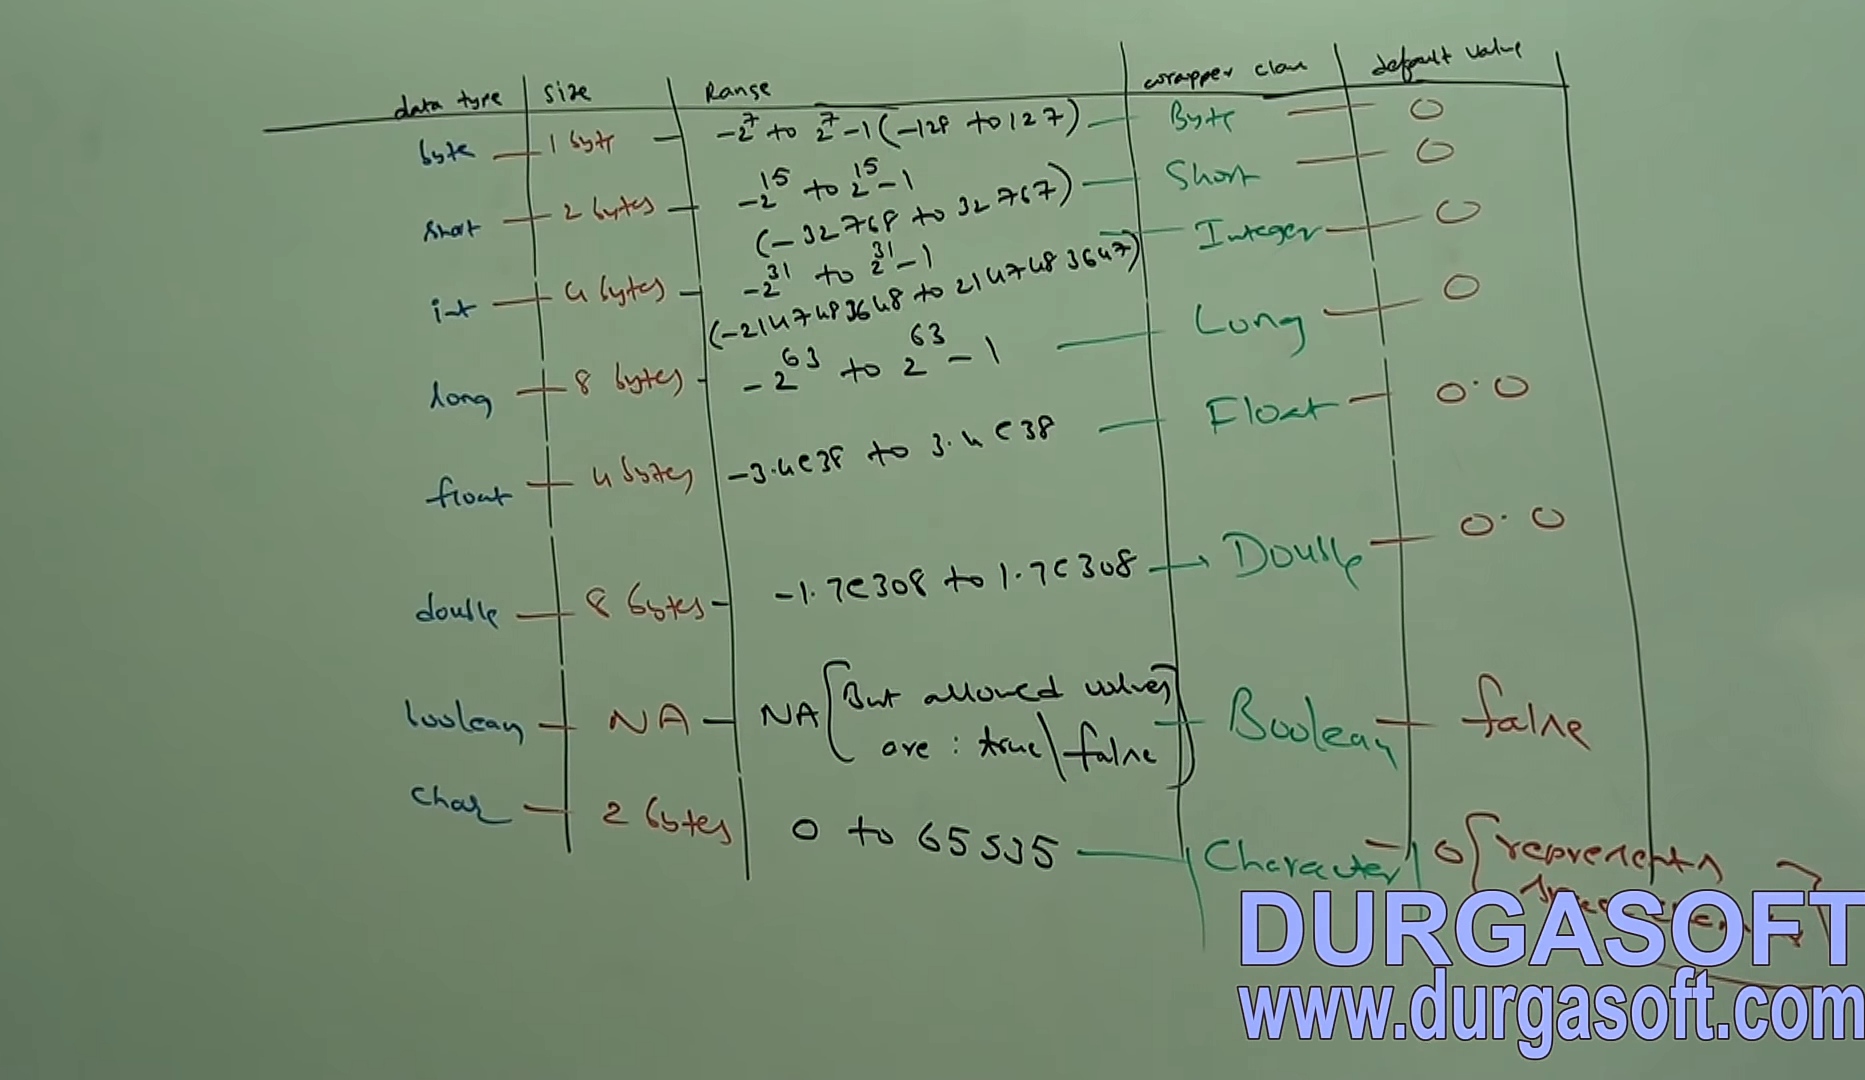 data type size Range wrapper class default value
byte 1 byte -2^7 to 2^7-1 (-128 to 127) Byte 0
short 2 bytes -2^15 to 2^15-1 Short 0
(-32768 to 32767)
int 4 bytes -2^31 to 2^31-1 Integer 0
(-2147483648 to 2147483647)
long 8 bytes -2^63 to 2^63-1 Long 0
float 4 bytes -3.4e38 to 3.4e38 Float 0.0
double 8 bytes -1.7e308 to 1.7e308 Double 0.0
boolean NA NA [But allowed values Boolean false
are : true\false]
char 2 bytes 0 to 65535 Character 0 [represents
DURGASOFT
www.durgasoft.com